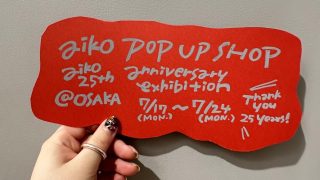 aiko POP UP SHOP
aiko anniversary
25th exhibition
@OSAKA 7/17~7/24
(MON.) (MON.)
Thank
you
25 years!